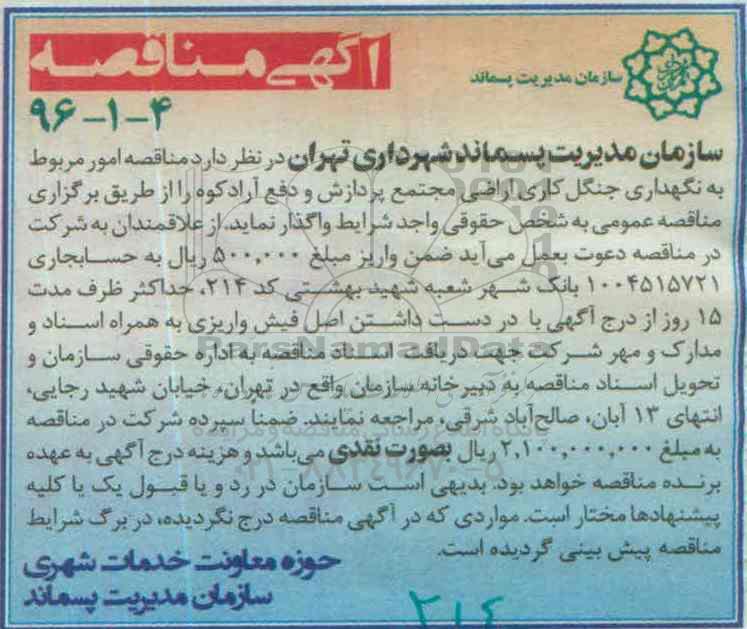 آگهی مناقصه
سازمان مدیریت پسماند
۹۶-۱-۴
سازمان مدیریت پسماند شهرداری تهران در نظر دارد مناقصه امور مربوط
به نگهداری جنگل کاری اراضی مجتمع پردازش و دفع آرادکوه را از طریق برگزاری
مناقصه عمومی به شخص حقوقی واجد شرایط واگذار نماید. از علاقمندان به شرکت
در مناقصه دعوت بعمل می‌آید ضمن واریز مبلغ ۵۰۰,۰۰۰ ریال به حسابجاری
۱۰۰۴۵۱۵۷۲۱ بانک شهر شعبه شهید بهشتی کد ۲۱۴، حداکثر ظرف مدت
۱۵ روز از درج آگهی با در دست داشتن اصل فیش واریزی به همراه اسناد و
مدارک و مهر شرکت جهت دریافت اسناد مناقصه به اداره حقوقی سازمان و
تحویل اسناد مناقصه به دبیرخانه سازمان واقع در تهران، خیابان شهید رجایی،
انتهای ۱۳ آبان، صالح‌آباد شرقی، مراجعه نمایند. ضمنا سپرده شرکت در مناقصه
به مبلغ ۲,۱۰۰,۰۰۰,۰۰۰ ریال بصورت نقدی می‌باشد و هزینه درج آگهی به عهده
برنده مناقصه خواهد بود. بدیهی است سازمان در رد و یا قبول یک یا کلیه
پیشنهادها مختار است. مواردی که در آگهی مناقصه درج نگردیده، در برگ شرایط
مناقصه پیش بینی گردیده است.
حوزه معاونت خدمات شهری
سازمان مدیریت پسماند
۲۱۴
ParsNamadData
۰۲۱-۸۸۳۴۹۶۷۰-۵